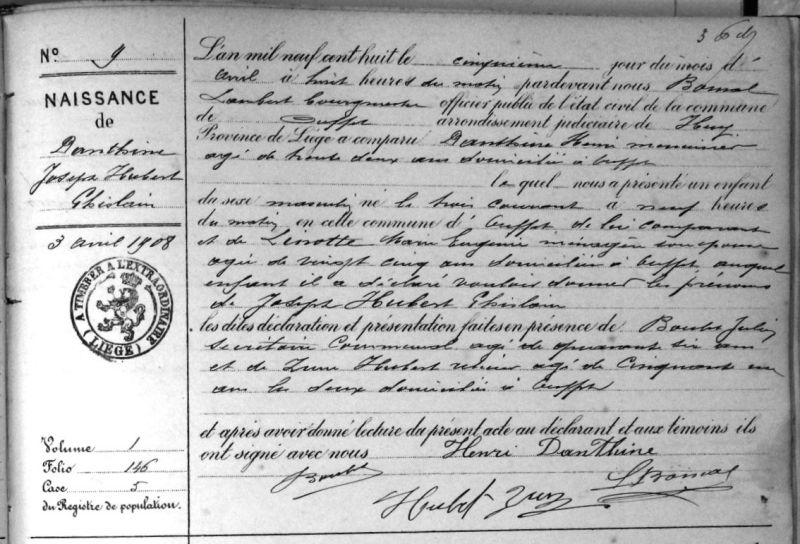 36
N° 9
NAISSANCE
de
Danthine
Joseph Hubert
Ghislain
3 avril 1908
A TIMBRER A L'EXTRAORDINAIRE
(LIEGE)
Volume 1
Folio 146
Case 5
du Registre de population.
L'an mil neuf cent huit le cinquième jour du mois d'
avril à huit heures du matin pardevant nous Bomal
Lambert bourgmestre officier public de l'état civil de la commune
de Ouffet arrondissement judiciaire de Huy
Province de Liége a comparu Danthine Henri menuisier
agé de trente deux ans domicilié à Ouffet
lequel nous a présenté un enfant
du sexe masculin né le trois courant à neuf heures
du matin en cette commune d'Ouffet, de lui comparant
et de Lenotte Marie Eugénie ménagère son épouse
agée de vingt cinq ans domiciliée à Ouffet, auquel
enfant il a déclaré vouloir donner les prénoms
de Joseph Hubert Ghislain
les dites déclaration et présentation faites en présence de Jules
Secrétaire Communal agé de quarante six ans
et de Hubert agé de cinquante un
ans les deux domiciliés à Ouffet
et après avoir donné lecture du présent acte au déclarant et aux témoins ils
ont signé avec nous Henri Danthine
Hubert LBomal